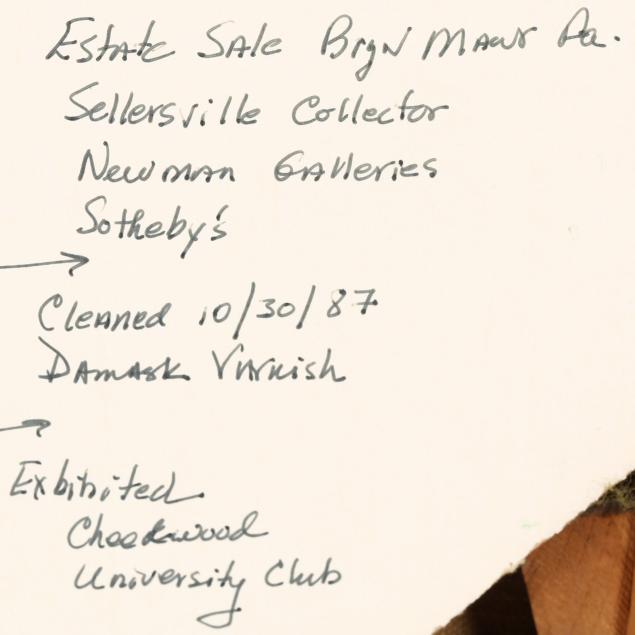 Estate Sale Bryn Mawr Pa.
Sellersville Collector
Newman Galleries
Sotheby's
Cleaned 10/30/87
Damask Varnish
Exbihited
Cheekwood
University Club